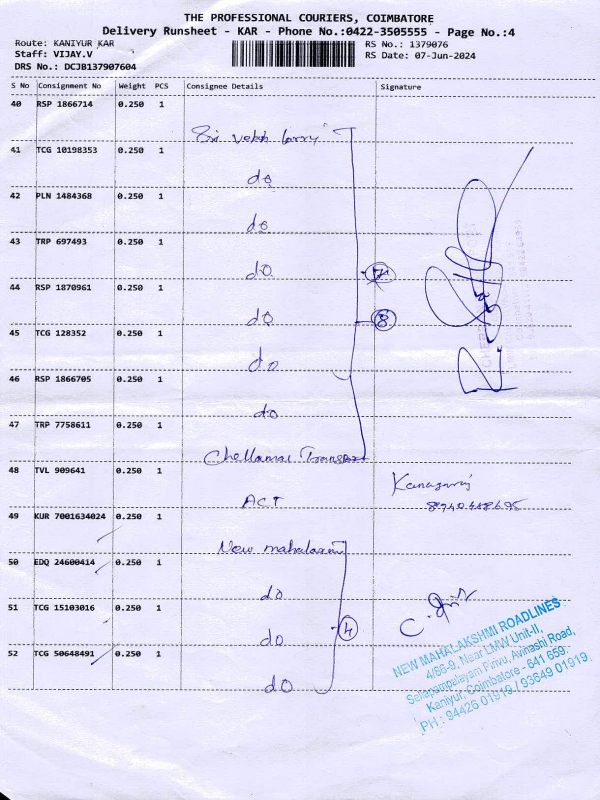 THE PROFESSIONAL COURIERS, COIMBATORE
Delivery Runsheet - KAR - Phone No.:0422-3505555 - Page No.:4
Route: KANIYUR KAR
Staff: VIJAY.V
DRS No.: DCJB137907604
RS No.: 1379076
RS Date: 07-Jun-2024
S No Consignment No Weight PCS Consignee Details Signature
40 RSP 1866714 0.250 1
41 TCG 10198353 0.250 1
do
42 PLN 1484368 0.250 1
do
43 TRP 697493 0.250 1
do 7
44 RSP 1870961 0.250 1
do 8
45 TCG 128352 0.250 1
do
46 RSP 1866705 0.250 1
do
47 TRP 7758611 0.250 1
Chellamai Transport
48 TVL 909641 0.250 1
ACT Kanagaraj
49 KUR 7001634024 0.250 1
New mahalaxmi
50 EDQ 24600414 0.250 1
do
51 TCG 15103016 0.250 1
do 4
52 TCG 50648491 0.250 1
do
NEW MAHALAKSHMI ROADLINES
4/86-9, Near LMW Unit-II,
Pirivu, Avinashi Road,
Kaniyur, Coimbatore - 641 659.
PH : 94426 01919 / 93649 01919